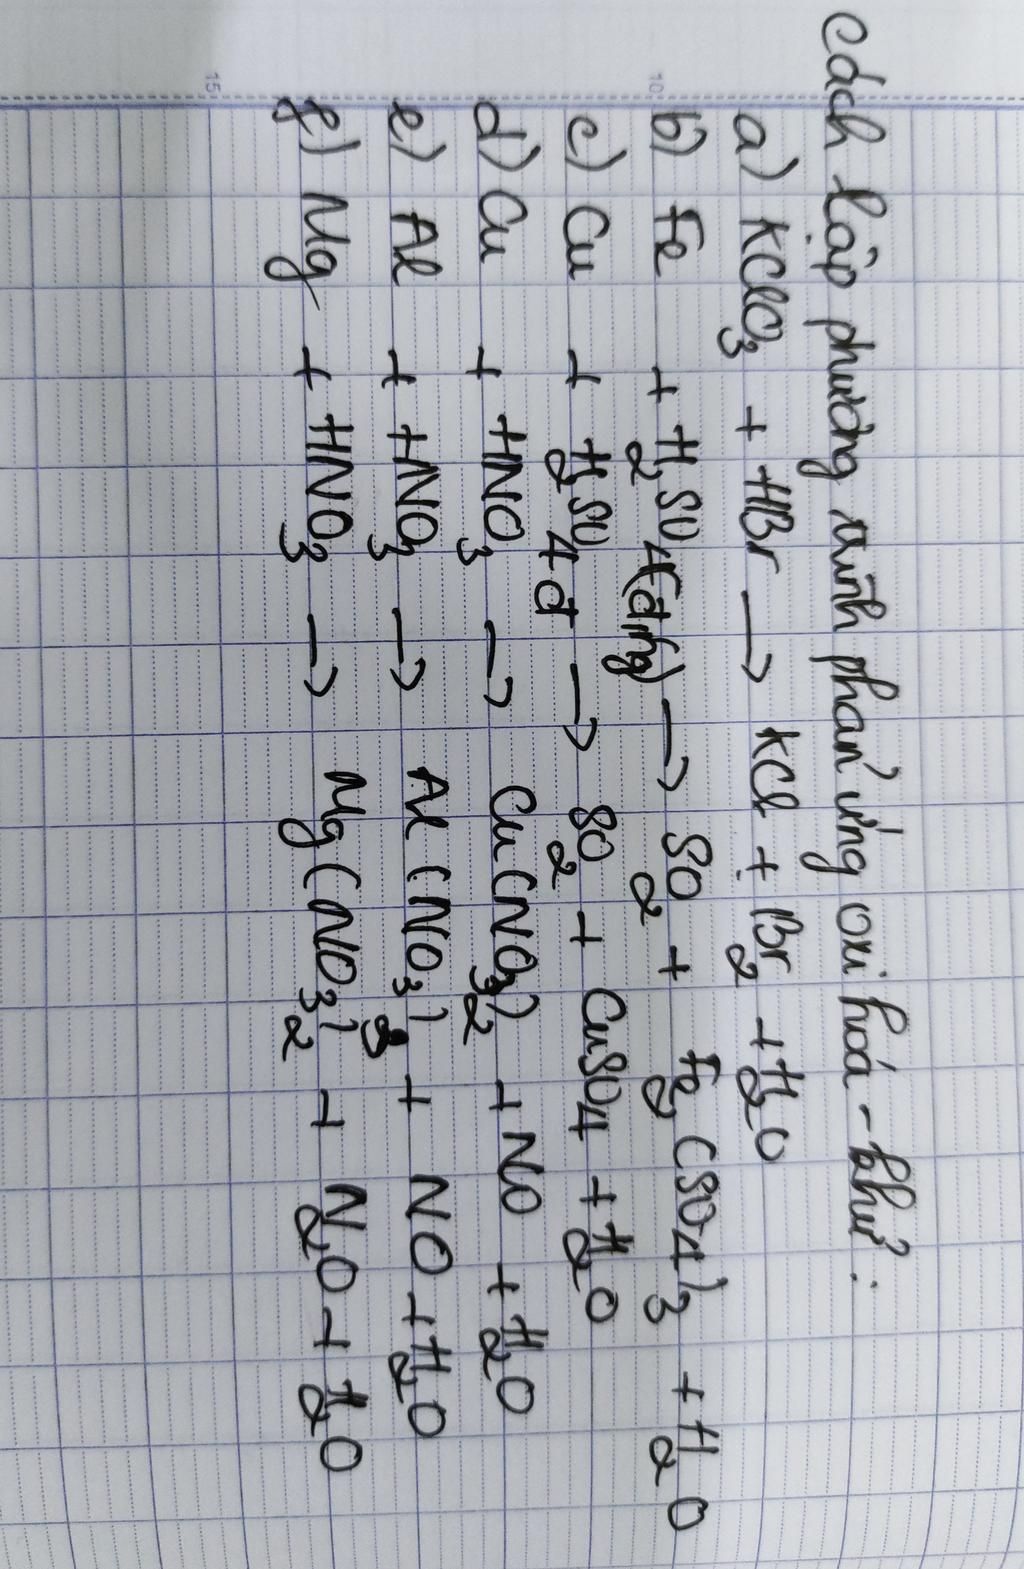 Cách lập phương trình phản ứng oxi hoá - khử :
a) KClO3 + HBr → KCl + Br2 + H2O
b) Fe + H2SO4(đ,ng) → SO2 + Fe2(SO4)3 + H2O
c) Cu + H2SO4đ → SO2 + CuSO4 + H2O
d) Cu + HNO3 → Cu(NO3)2 + NO + H2O
e) Al + HNO3 → Al(NO3)3 + NO + H2O
f) Mg + HNO3 → Mg(NO3)2 + N2O + H2O
10
15